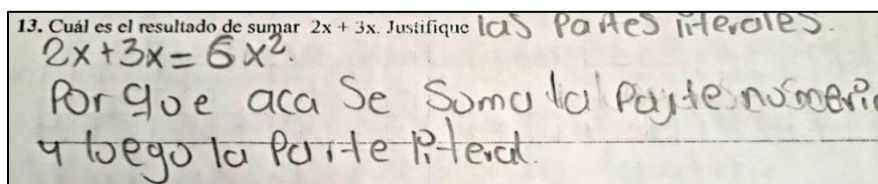 13. Cuál es el resultado de sumar 2x + 3x. Justifique las Partes literales.
2x+3x = 6x².
Porque aca Se Suma la Parte númeri
y luego la Parte literal.